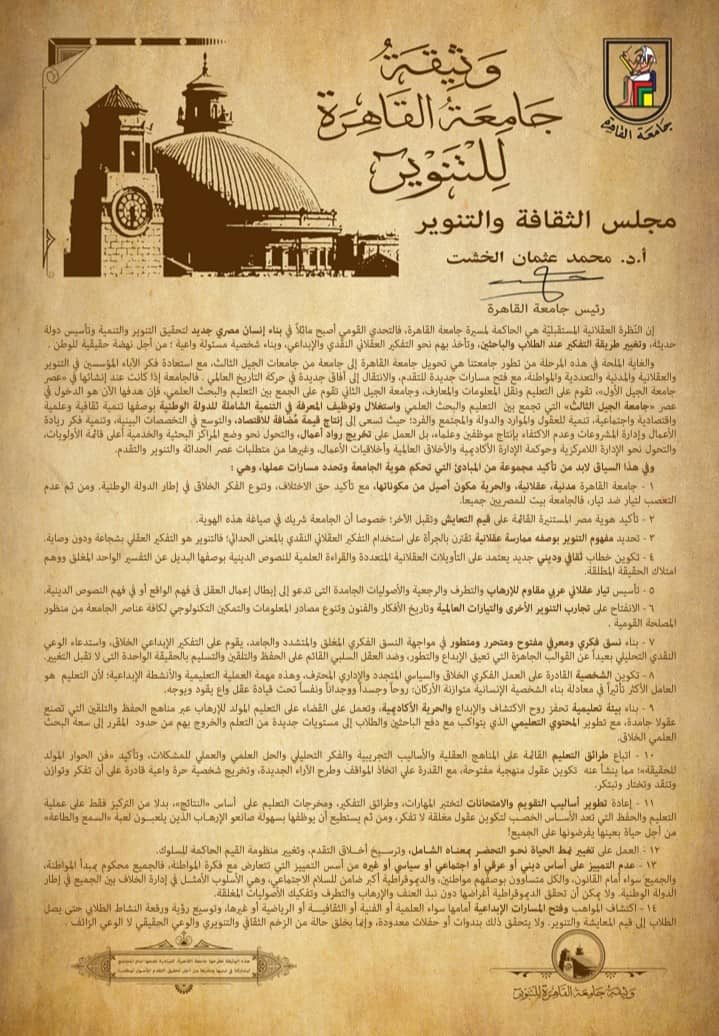 وَثِيقَةُ
جَامِعَةُ القَاهِرَة
لِلتَنْوِيرِ
جامعة القاهرة
مجلس الثقافة والتنوير
أ.د. محمد عثمان الخشت
رئيس جامعة القاهرة
إن النظرة العقلانية المستقبليّة هي الحاكمة لمسيرة جامعة القاهرة، فالتحدي القومي أصبح ماثلاً في بناء إنسان مصري جديد لتحقيق التنوير والتنمية وتأسيس دولة
حديثة، وتغيير طريقة التفكير عند الطلاب والباحثين، وتأخذ بهم نحو التفكير العقلاني النقدي والإبداعي، وبناء شخصية مسئولة واعية ؛ من أجل نهضة حقيقية للوطن .
والغاية الملحة في هذه المرحلة من تطور جامعتنا هي تحويل جامعة القاهرة إلى جامعة من جامعات الجيل الثالث، مع استعادة فكر الآباء المؤسسين في التنوير
والعقلانية والمدنية والتعددية والمواطنة، مع فتح مسارات جديدة للتقدم، والانتقال إلى آفاق جديدة في حركة التاريخ العالمي . فالجامعة إذا كانت عند إنشائها في «عصر
جامعة الجيل الأول»، تقوم على التعليم ونقل المعلومات والمعارف، وجامعة الجيل الثاني تقوم على الجمع بين التعليم والبحث العلمي، فإن هدفها الآن هو الدخول في
عصر «جامعة الجيل الثالث» التي تجمع بين التعليم والبحث العلمي واستغلال وتوظيف المعرفة في التنمية الشاملة للدولة الوطنية بوصفها تنمية ثقافية وعلمية
واقتصادية واجتماعية، تنمية للعقول والموارد والدولة والمجتمع والفرد؛ حيث تسعى إلى إنتاج قيمة مُضافة للاقتصاد، والتوسع في التخصصات البينية، وتنمية فكر ريادة
الأعمال وإدارة المشروعات وعدم الاكتفاء بإنتاج موظفين وعلماء، بل العمل على تخريج رواد أعمال، والتحول نحو وضع المراكز البحثية والخدمية أعلى قائمة الأولويات،
والتحول نحو الإدارة اللامركزية وحوكمة الإدارة الأكاديمية والأخلاق العالمية وأخلاقيات الأعمال، وغيرها من متطلبات عصر الحداثة والتنوير والتقدم.
وفي هذا السياق لابد من تأكيد مجموعة من المبادئ التي تحكم هوية الجامعة وتحدد مسارات عملها، وهي :
١ - جامعة القاهرة مدنية، عقلانية، والحرية مكون أصيل من مكوناتها، مع تأكيد حق الاختلاف، وتنوع الفكر الخلاق في إطار الدولة الوطنية. ومن ثم عدم
التعصب لتيار ضد تيار، فالجامعة بيت للمصريين جميعا.
٢ - تأكيد هوية مصر المستنيرة القائمة على قيم التعايش وتقبل الآخر؛ خصوصا أن الجامعة شريك في صياغة هذه الهوية.
٣ - تحديد مفهوم التنوير بوصفه ممارسة عقلانية تقترن بالجرأة على استخدام التفكير العقلاني النقدي بالمعنى الحداثي؛ فالتنوير هو التفكير العقلي بشجاعة ودون وصاية.
٤ - تكوين خطاب ثقافي وديني جديد يعتمد على التأويلات العقلانية المتعددة والقراءة العلمية للنصوص الدينية بوصفها البديل عن التفسير الواحد المغلق ووهم
امتلاك الحقيقة المطلقة.
٥ - تأسيس تيار عقلاني عربي مقاوم للإرهاب والتطرف والرجعية والأصوليات الجامدة التى تدعو إلى إبطال إعمال العقل فى فهم الواقع أو في فهم النصوص الدينية.
٦ - الانفتاح على تجارب التنوير الأخرى والتيارات العالمية وتاريخ الأفكار والفنون وتنوع مصادر المعلومات والتمكين التكنولوجي لكافة عناصر الجامعة من منظور
المصلحة القومية .
٧ - بناء نسق فكري ومعرفي مفتوح ومتحرر ومتطور في مواجهة النسق الفكري المغلق والمتشدد والجامد، يقوم على التفكير الإبداعي الخلاق، واستدعاء الوعي
النقدي التحليلي بعيداً عن القوالب الجاهزة التي تعيق الإبداع والتطور، وضد العقل السلبي القائم على الحفظ والتلقين والتسليم بالحقيقة الواحدة التى لا تقبل التغيير.
٨ - تكوين الشخصية القادرة على العمل الفكري الخلاق والسياسي المتجدد والإداري المحترف، وهذه مهمة العملية التعليمية والأنشطة الإبداعية؛ لأن التعليم هو
العامل الأكثر تأثيراً في معادلة بناء الشخصية الإنسانية متوازنة الأركان: روحاً وجسداً ووجداناً ونفساً تحت قيادة عقل واع يقود ويوجه.
٩ - بناء بيئة تعليمية تحفز روح الاكتشاف والإبداع والحرية الأكاديمية، وتعمل على القضاء على التعليم المولد للإرهاب عبر مناهج الحفظ والتلقين التي تصنع
عقولا جامدة، مع تطوير المحتوي التعليمي الذي يتواكب مع دفع الباحثين والطلاب إلى مستويات جديدة من التعلم والخروج بهم من حدود المقرر إلى سعة البحث
العلمي الخلاق.
١٠ - اتباع طرائق التعليم القائمة على المناهج العقلية والأساليب التجريبية والفكر التحليلي والحل العلمي والعملي للمشكلات، وتأكيد «فن الحوار المولد
للحقيقة»؛ مما ينشأ عنه تكوين عقول منهجية مفتوحة، مع القدرة علي اتخاذ المواقف وطرح الآراء الجديدة، وتخريج شخصية حرة واعية قادرة على أن تفكر وتوازن
وتنقد وتختار وتبتكر.
١١ - إعادة تطوير أساليب التقويم والامتحانات لتختبر المهارات، وطرائق التفكير، ومخرجات التعليم على أساس «النتائج»، بدلا من التركيز فقط على عملية
التعليم والحفظ التي تعد الأساس الخصب لتكوين عقول مغلقة لا تفكر، ومن ثم يستطيع أن يوظفها بسهولة صانعو الإرهاب الذين يلعبون لعبة «السمع والطاعة»
من أجل حياة بعينها يفرضونها على الجميع!
١٢ - العمل على تغيير نمط الحياة نحو التحضر بمعناه الشامل، وترسيخ أخلاق التقدم، وتغيير منظومة القيم الحاكمة للسلوك.
١٣ - عدم التمييز على أساس ديني أو عرقي أو اجتماعي أو سياسي أو غيره من أسس التمييز التي تتعارض مع فكرة المواطنة، فالجميع محكوم بمبدأ المواطنة،
والجميع سواء أمام القانون، والكل متساوون بوصفهم مواطنين، والديموقراطية أكبر ضامن للسلام الاجتماعي، وهي الأسلوب الأمثل في إدارة الخلاف بين الجميع في إطار
الدولة الوطنية. ولا يمكن أن تحقق الديموقراطية أغراضها دون نبذ العنف والإرهاب والتطرف وتفكيك الأصوليات المغلقة.
١٤ - اكتشاف المواهب وفتح المسارات الإبداعية أمامها سواء العلمية أو الفنية أو الثقافية أو الرياضية أو غيرها، وتوسيع رؤية ورقعة النشاط الطلابي حتى يصل
الطلاب إلى قيم المعايشة والتنوير. ولا يتحقق ذلك بندوات أو حفلات معدودة، وإنما بخلق حالة من الزخم الثقافي والتنويري والوعي الحقيقي لا الوعي الزائف .
وثيقة جامعة القاهرة للتنوير